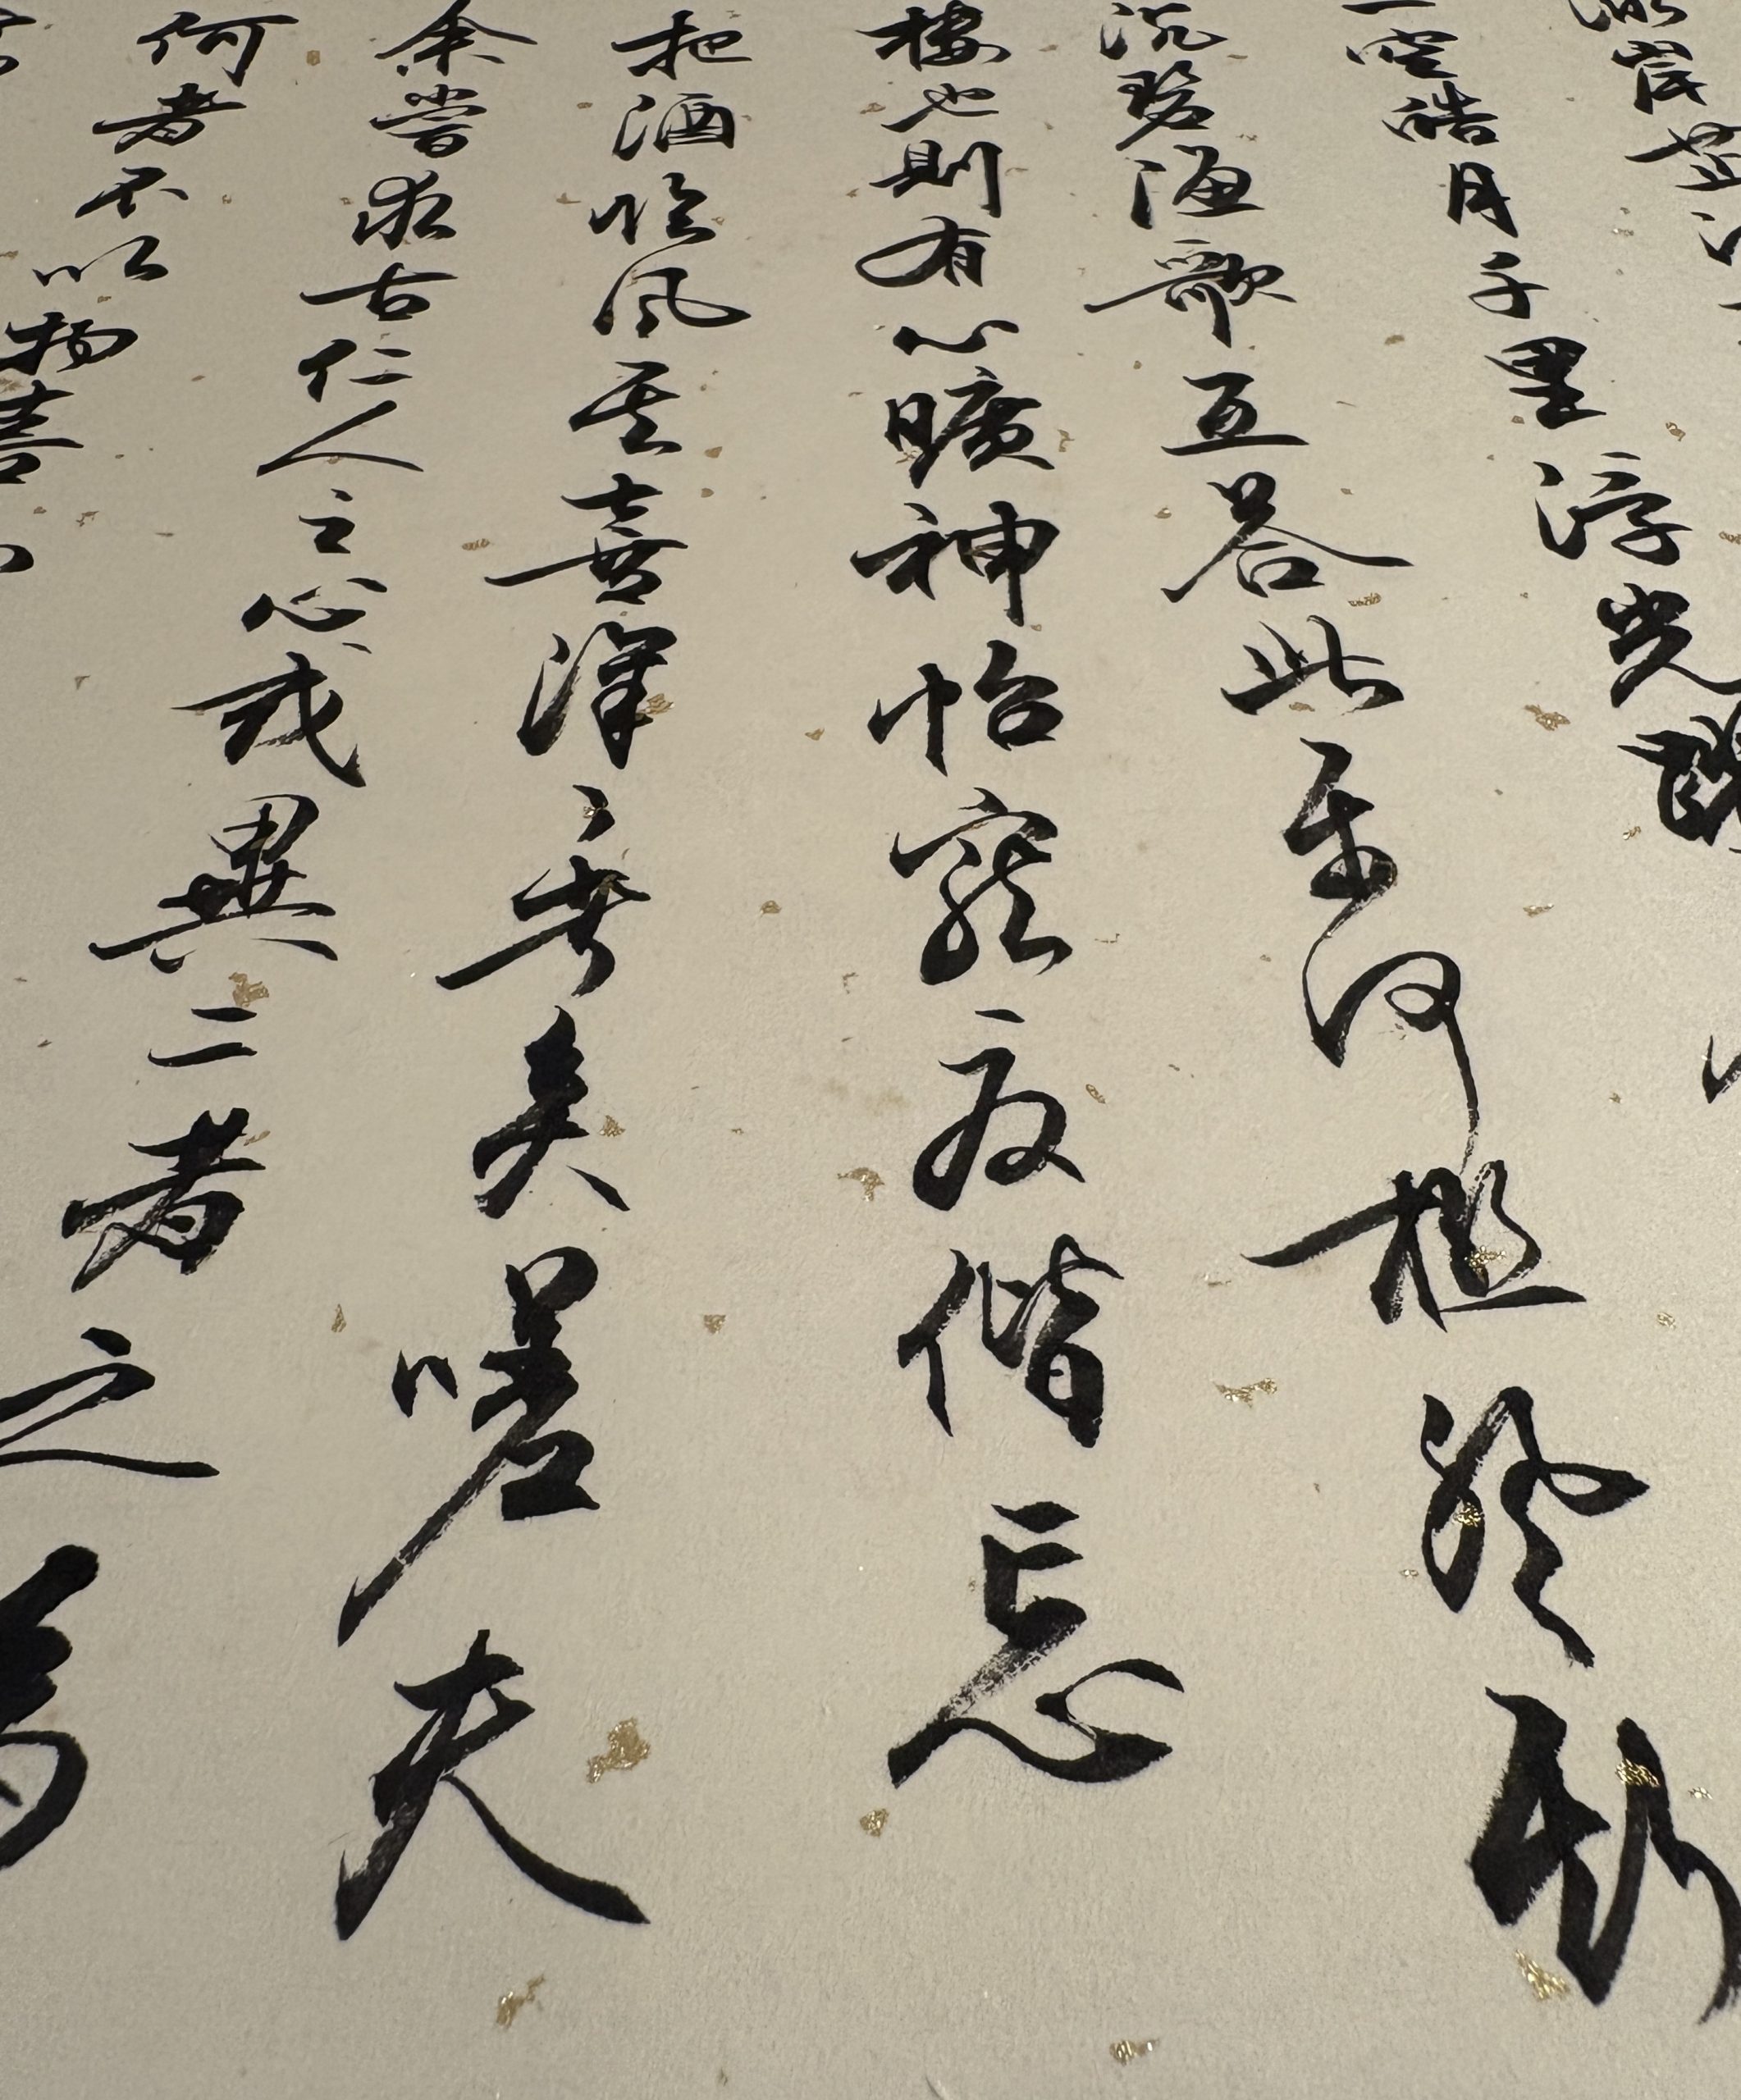 泳岸芷汀
一空皓月千里浮光躍
沉璧漁歌互答此樂何極登斯
樓也則有心曠神怡寵辱偕忘
把酒臨風其喜洋々者矣嗟夫
余嘗求古仁人之心或異二者之為
何者不以物喜不